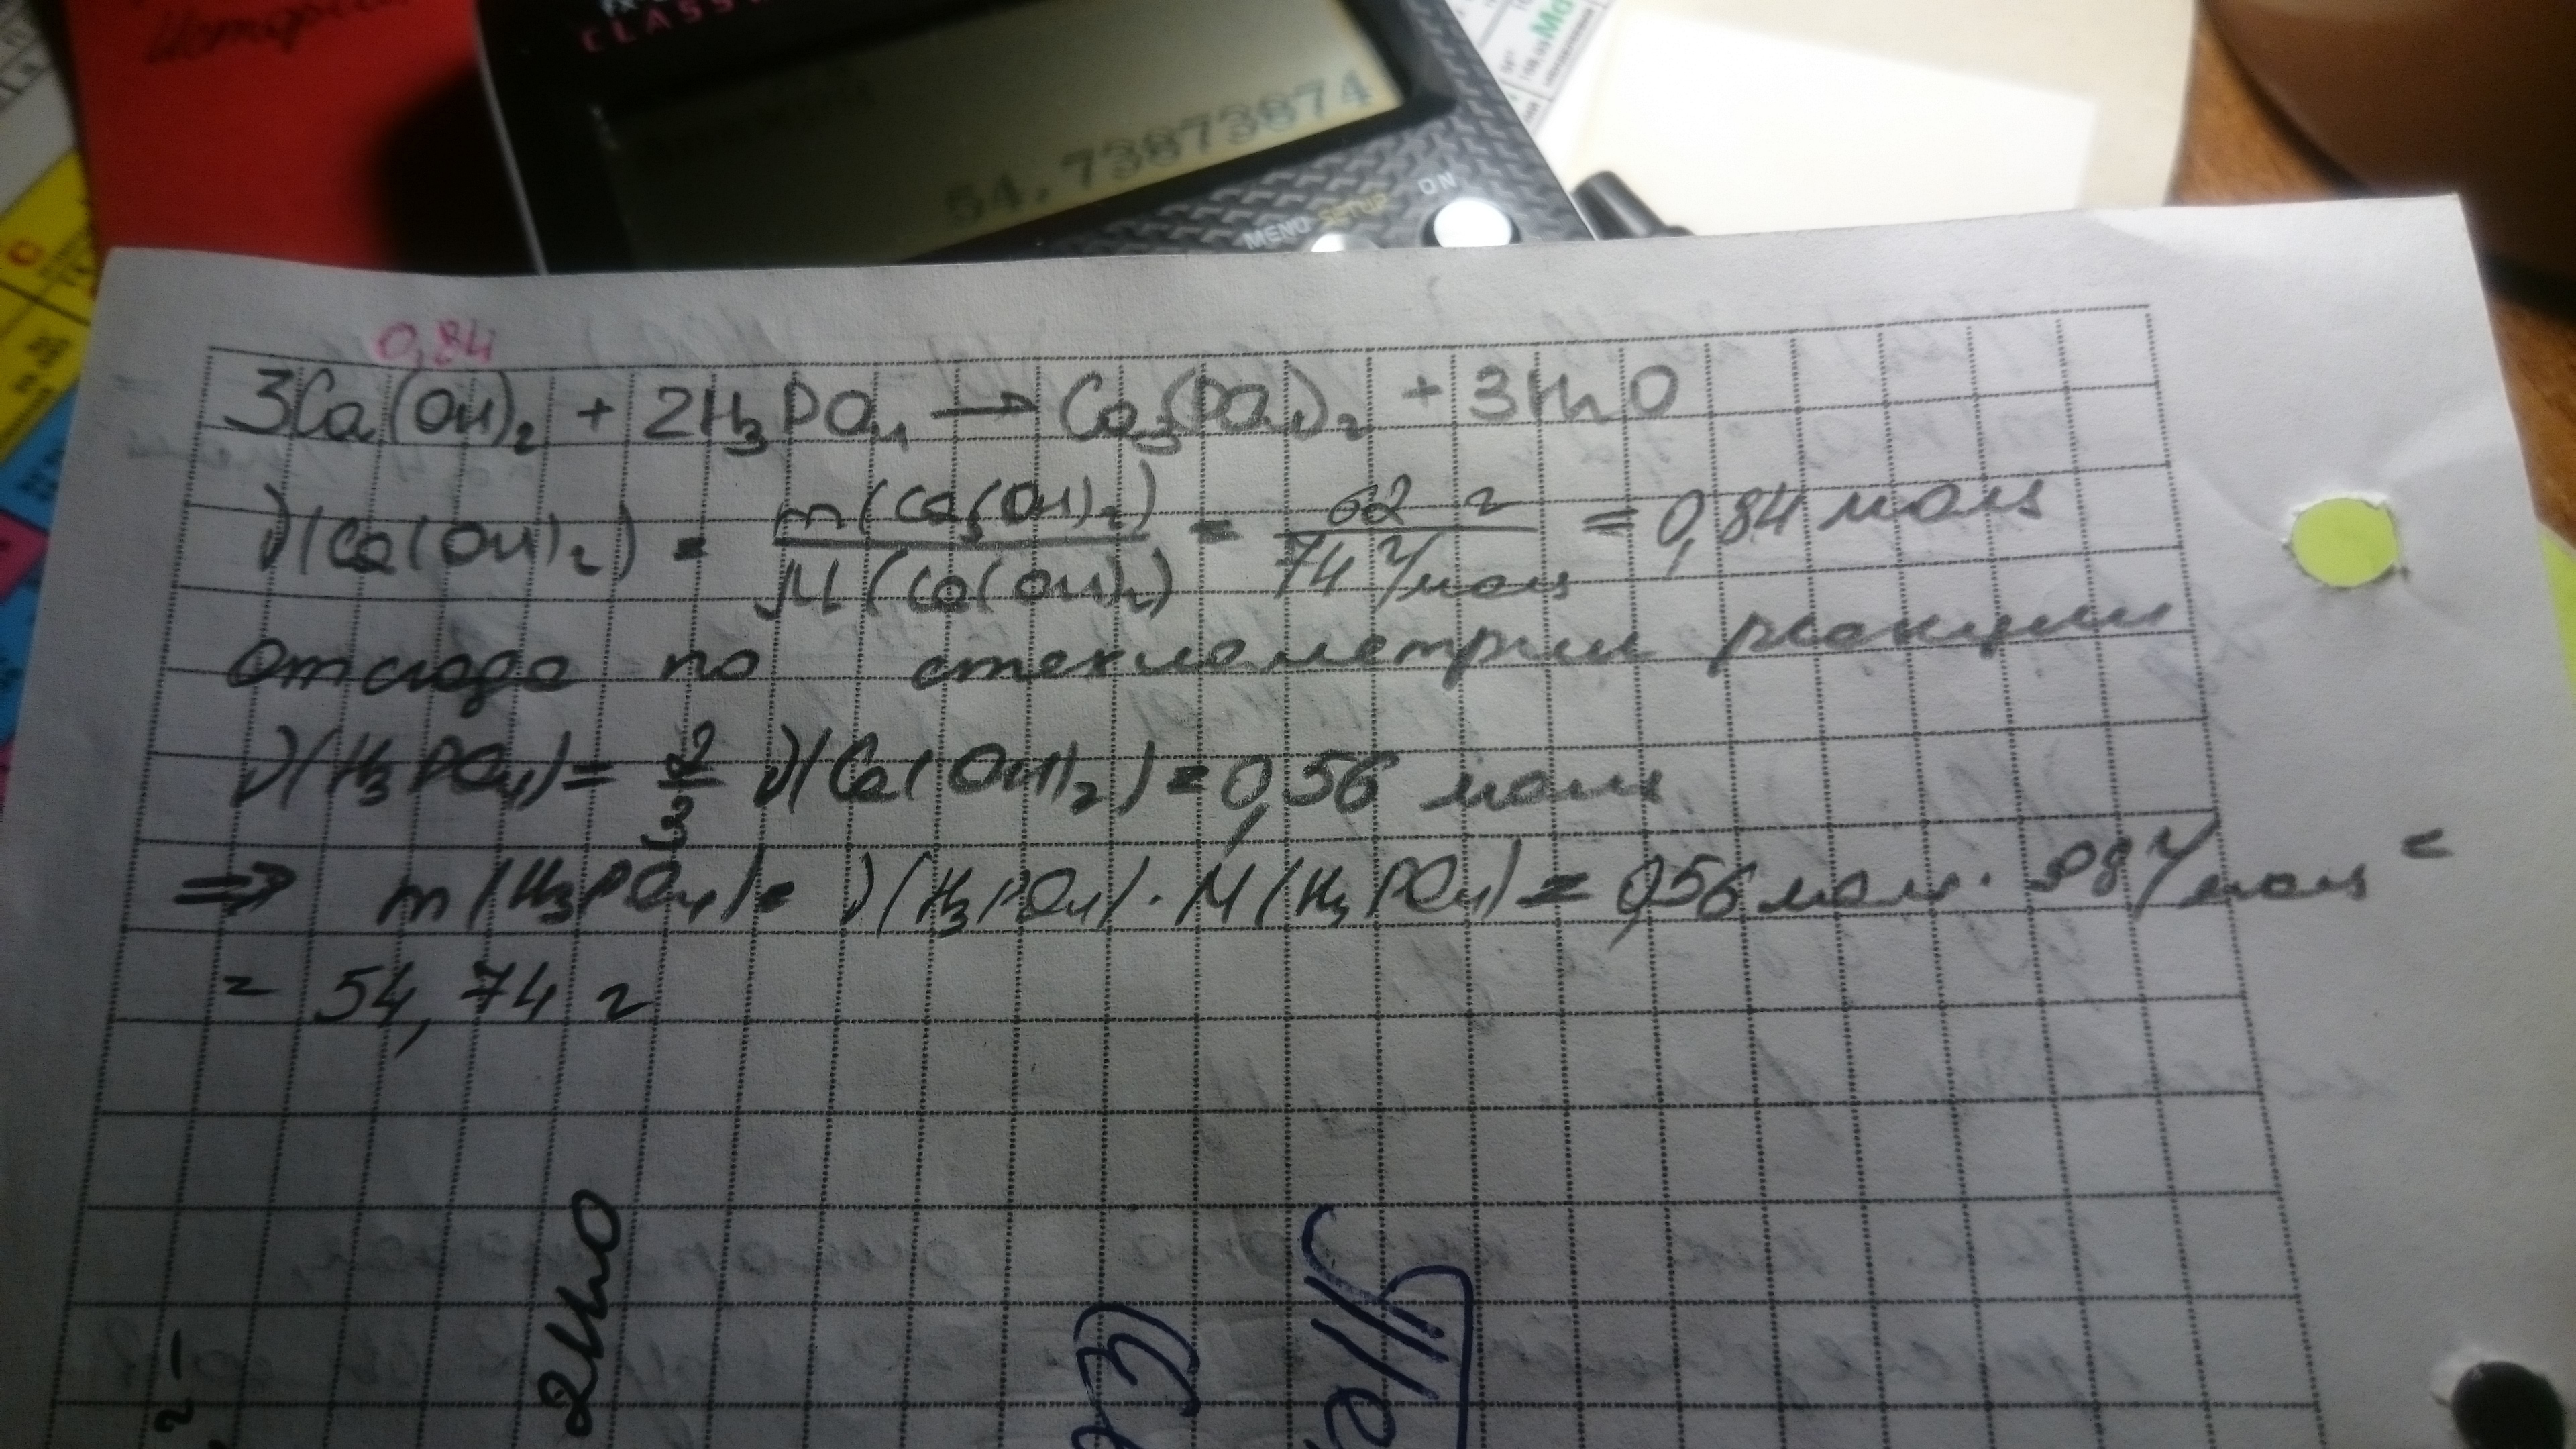 История
CLASSWIZ
54.73873874
MENU SETUP ON
0,84
3Ca(OH)₂ + 2H₃PO₄ → Ca₃(PO₄)₂ + 3H₂O
ν(Ca(OH)₂) = m(Ca(OH)₂) / M(Ca(OH)₂) = 62 г / 74 г/моль = 0,84 моль
отсюда по стехиометрии реакции
ν(H₃PO₄) = 2/3 ν(Ca(OH)₂) = 0,56 моль
⇒ m(H₃PO₄) = ν(H₃PO₄) · M(H₃PO₄) = 0,56 моль · 98 г/моль =
= 54,74 г